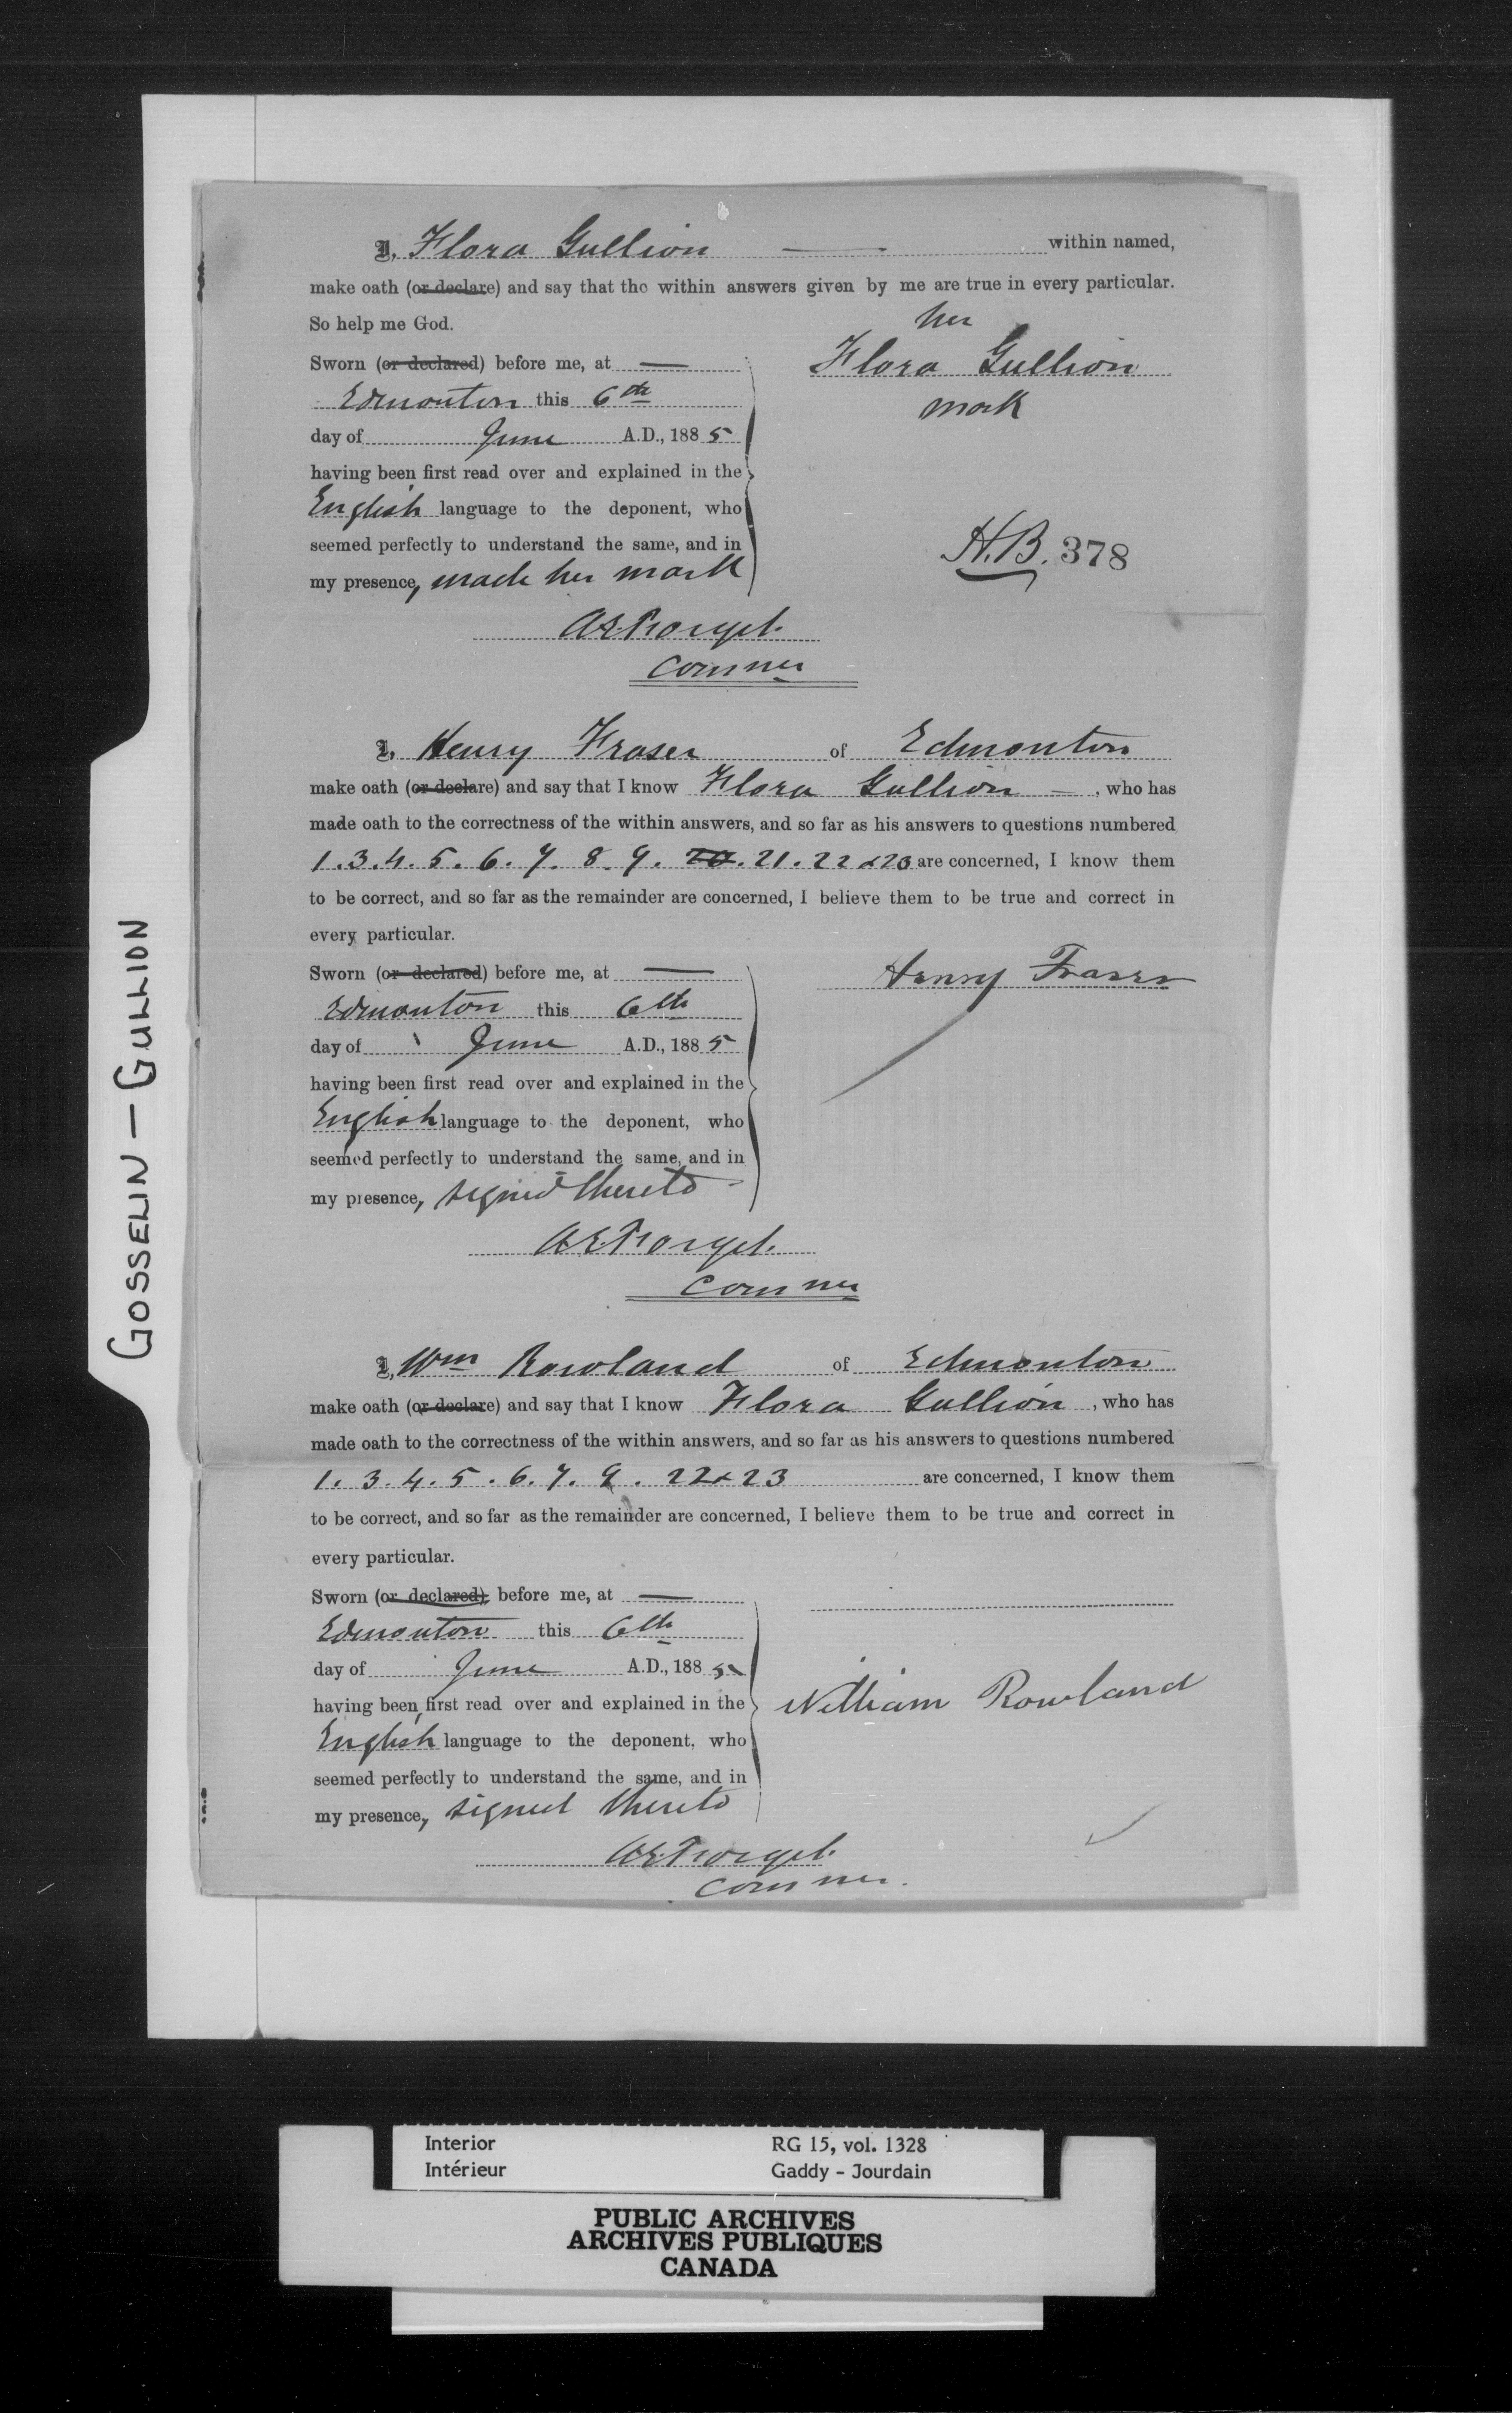 I, Flora Gullion — within named,
make oath (or declare) and say that the within answers given by me are true in every particular.
So help me God.
her
Flora Gullion
mark
Sworn (or declared) before me, at —
Edmonton this 6th
day of June A.D., 1885
having been first read over and explained in the
English language to the deponent, who
seemed perfectly to understand the same, and in
my presence, made her mark
H.B. 378
A.E. Forget
Commer
I, Henry Fraser of Edmonton
make oath (or declare) and say that I know Flora Gullion — , who has
made oath to the correctness of the within answers, and so far as his answers to questions numbered
1. 3. 4. 5. 6. 7. 8. 9. 20. 21. 22 & 23 are concerned, I know them
to be correct, and so far as the remainder are concerned, I believe them to be true and correct in
every particular.
Sworn (or declared) before me, at —
Henry Fraser
Edmonton this 6th
day of June A.D., 1885
having been first read over and explained in the
English language to the deponent, who
seemed perfectly to understand the same, and in
my presence, signed thereto
A.E. Forget
Commer
I, Wm Rowland of Edmonton
make oath (or declare) and say that I know Flora Gullion , who has
made oath to the correctness of the within answers, and so far as his answers to questions numbered
1. 3. 4. 5. 6. 7. 9. 22 & 23 are concerned, I know them
to be correct, and so far as the remainder are concerned, I believe them to be true and correct in
every particular.
Sworn (or declared) before me, at —
Edmonton this 6th
day of June A.D., 1885
having been first read over and explained in the
William Rowland
English language to the deponent, who
seemed perfectly to understand the same, and in
my presence, signed thereto
A.E. Forget
Commer.
GOSSELIN — GULLION
Interior RG 15, vol. 1328
Intérieur Gaddy - Jourdain
PUBLIC ARCHIVES
ARCHIVES PUBLIQUES
CANADA